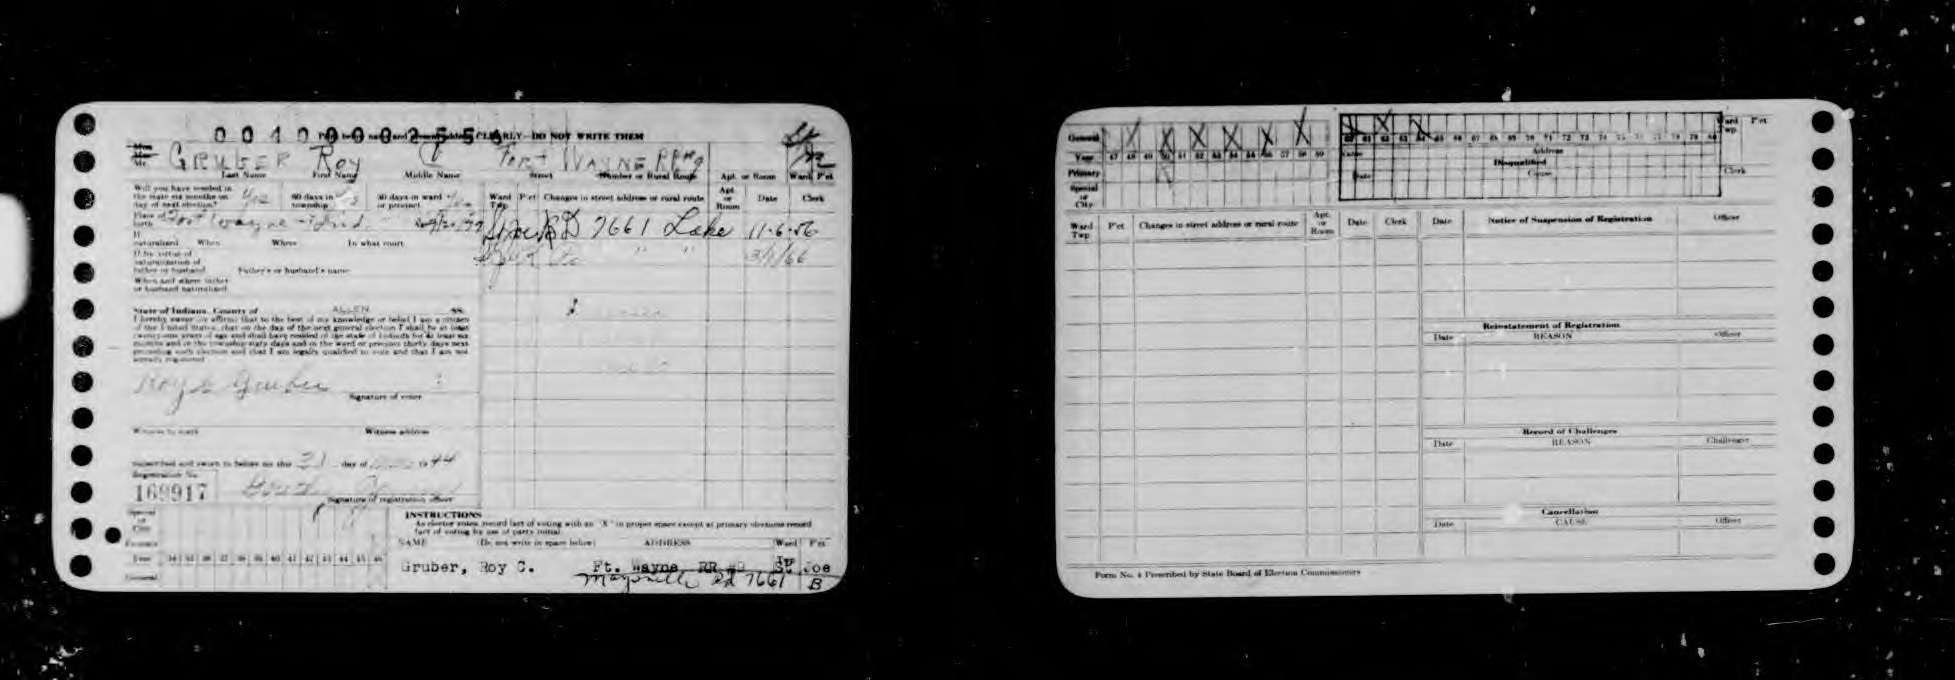 0010000256
CLEARLY—DO NOT WRITE THEM
Mr. GRUBER Roy C FORT WAYNE RR #9
Last Name First Name Middle Name Street Number or Rural Route Apt. or Room Ward P'ct
Will you have resided in the state six months on day of next election? Yes 60 days in township Yes 30 days in ward or precinct Yes
Ward Twp. P'ct Changes in street address or rural route Apt. or Room Date Clerk
Place of birth Fort Wayne - Ind.
St Joe B D 7661 Lake 11-6-56
If naturalized When Where In what court
" "
If by virtue of naturalization of father or husband Father's or husband's name
When and where father or husband naturalized
State of Indiana, County of ALLEN SS:
I hereby swear or affirm that to the best of my knowledge or belief I am a citizen
of the United States, that on the day of the next general election I shall be at least
twenty-one years of age and shall have resided in the state of Indiana for at least six
months and in the township sixty days and in the ward or precinct thirty days next
preceding such election and that I am legally qualified to vote and that I am not
already registered
Roy C Gruber
Signature of voter
Witness to mark Witness address
Subscribed and sworn to before me this 21 day of 1944
Registration No.
169917
Signature of registration officer
Special or City
Primary
Year 34 35 36 37 38 39 40 41 42 43 44 45 46
General
INSTRUCTIONS
As elector votes, record fact of voting with an "X" in proper space except at primary elections record
fact of voting by use of party initial
NAME (Do not write in space below) ADDRESS Ward Twp P'ct
Gruber, Roy C. Ft. Wayne, RR #9 St Joe
Maysville Rd 7661 B
General
Year 47 48 49 50 51 52 53 54 55 56 57 58 59
Primary
Special or City
60 61 62 63 64 65 66 67 68 69 70 71 72 73 74 75 76 77 78 79 80
Ward Twp. P'ct
Address
Disqualified
Date Cause Clerk
Ward Twp P'ct Changes in street address or rural route Apt. or Room Date Clerk
Date Notice of Suspension of Registration Officer
Reinstatement of Registration
Date REASON Officer
Record of Challenges
Date REASON Challenger
Cancellation
Date CAUSE Officer
Form No. 4 Prescribed by State Board of Election Commissioners